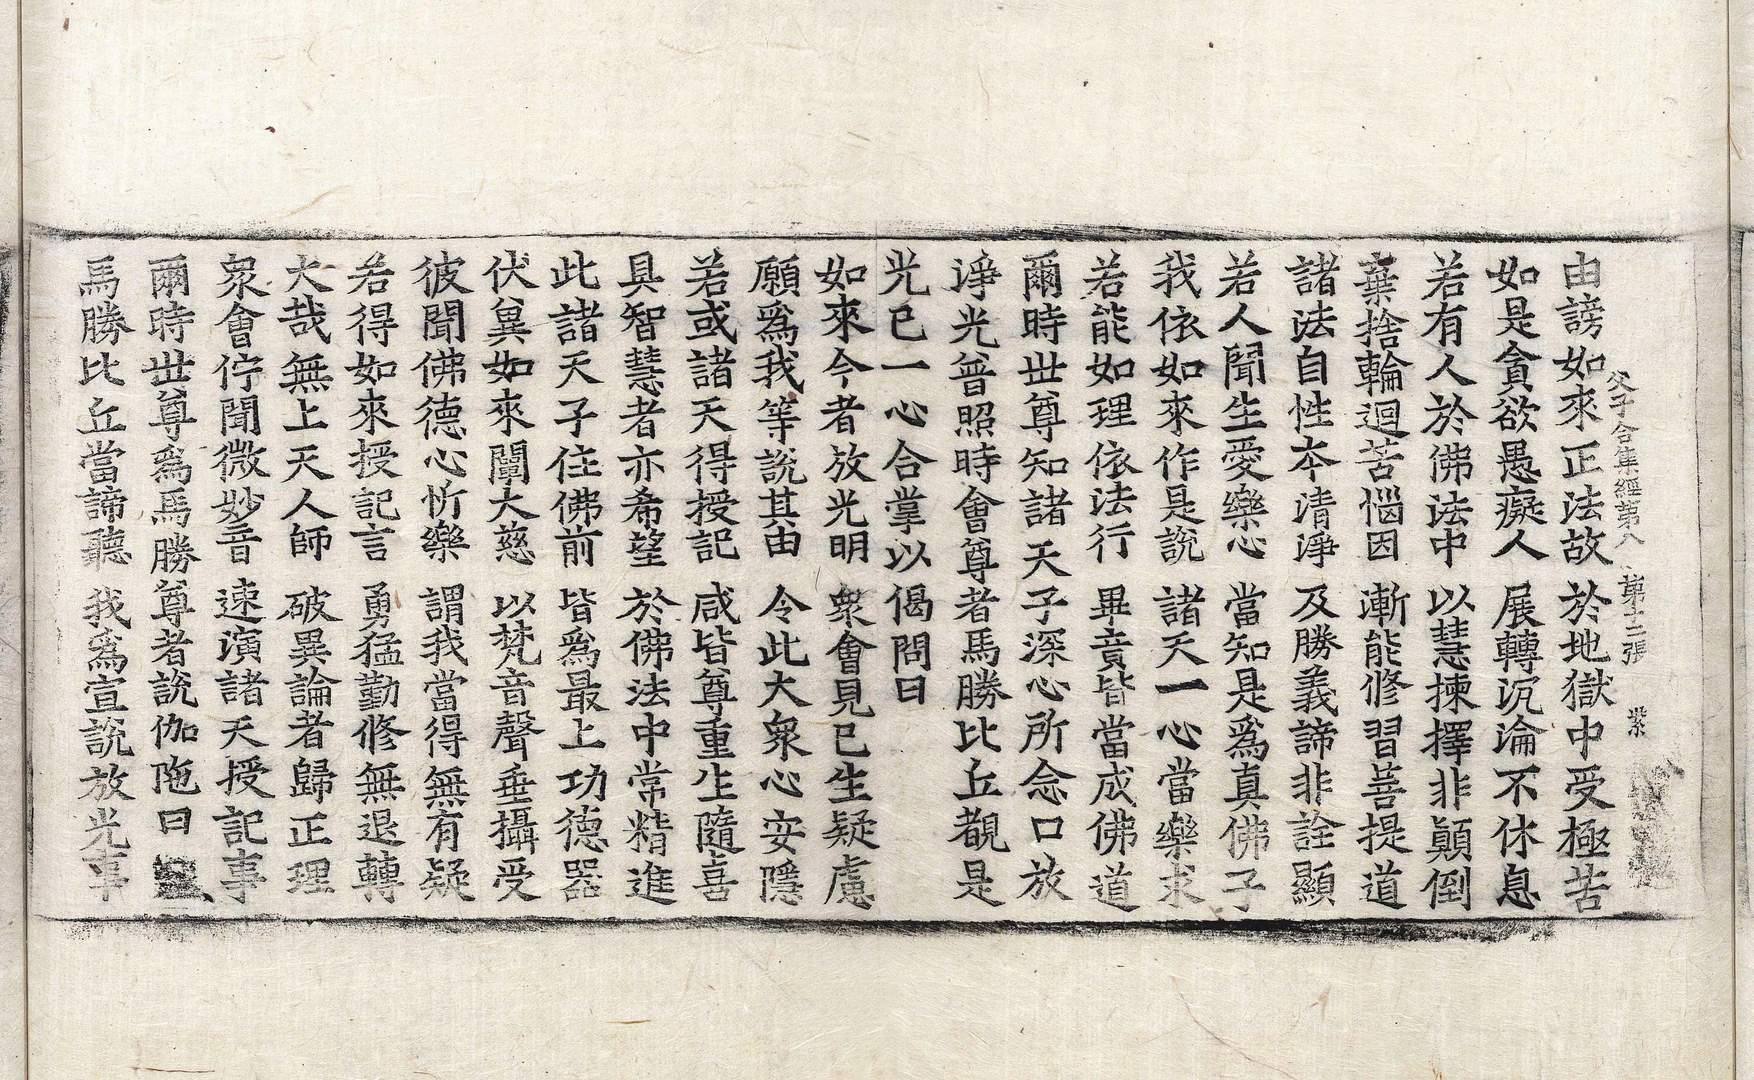 父子合集經第八 第十二張 紫
由謗如來正法故 於地獄中受極苦
如是貪欲愚癡人 展轉沉淪不休息
若有人於佛法中 以慧揀擇非顚倒
棄捨輪迴苦惱因 漸能修習菩提道
諸法自性本清淨 及勝義諦非詮顯
若人聞生愛樂心 當知是爲真佛子
我依如來作是說 諸天一心當樂求
若能如理依法行 畢竟皆當成佛道
爾時世尊知諸天子深心所念口放
淨光普照時會尊者馬勝比丘覩是
光已一心合掌以偈問曰
如來今者放光明 衆會見已生疑慮
願爲我等說其由 令此大衆心安隱
若或諸天得授記 咸皆尊重生隨喜
具智慧者亦希望 於佛法中常精進
此諸天子住佛前 皆爲最上功德器
伏兾如來闡大慈 以梵音聲垂攝受
彼聞佛德心忻樂 謂我當得無有疑
若得如來授記言 勇猛勤修無退轉
大哉無上天人師 破異論者歸正理
衆會佇聞微妙音 速演諸天授記事
爾時世尊爲馬勝尊者說伽陁曰
馬勝比丘當諦聽 我爲宣說放光事